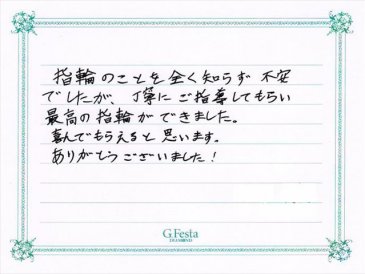 指輪のことを全く知らず 不安
でしたが、丁寧にご指導してもらい
最高の指輪ができました。
喜んでもらえると思います。
ありがとうございました！
G.Festa
DIAMOND